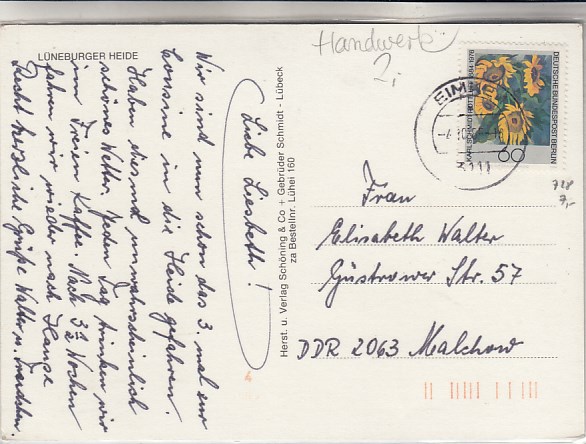 LÜNEBURGER HEIDE
Liebe Liesbeth!
Wir sind nun schon das 3. mal zur
in die Heide gefahren.
Haben diesmal unwahrscheinlich
schönes Wetter. Jeden Tag trinken wir
im Freien Kaffee. Nach 3½ Wochen
fahren wir wieder nach Hause
Recht herzliche Grüße Walter u.
Herst. u. Verlag Schöning & Co + Gebrüder Schmidt - Lübeck
za Bestellnr. Lühei 160
Handwerk
2,-
DEUTSCHE BUNDESPOST BERLIN
60
3111
728
7,-
Frau
Elisabeth Walter
Güstrower Str. 57
DDR 2063 Malchow